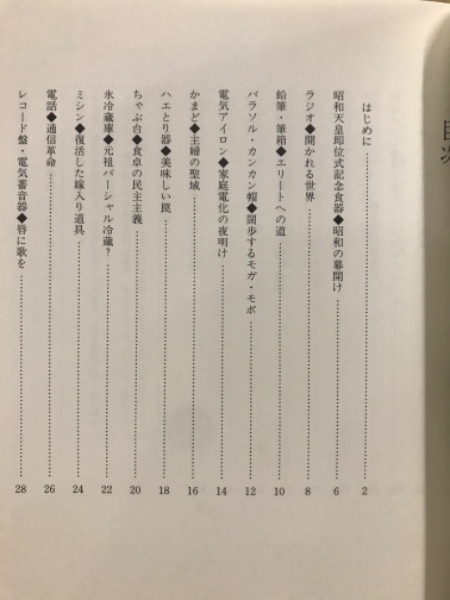 目次
はじめに 2
昭和天皇即位式記念食器◆昭和の幕開け 6
ラジオ◆開かれる世界 8
鉛筆・筆箱◆エリートへの道 10
パラソル・カンカン帽◆闊歩するモガ・モボ 12
電気アイロン◆家庭電化の夜明け 14
かまど◆主婦の聖域 16
ハエとり器◆美味しい罠 18
ちゃぶ台◆食卓の民主主義 20
氷冷蔵庫◆元祖パーシャル冷蔵？ 22
ミシン◆復活した嫁入り道具 24
電話◆通信革命 26
レコード盤・電気蓄音器◆唇に歌を 28